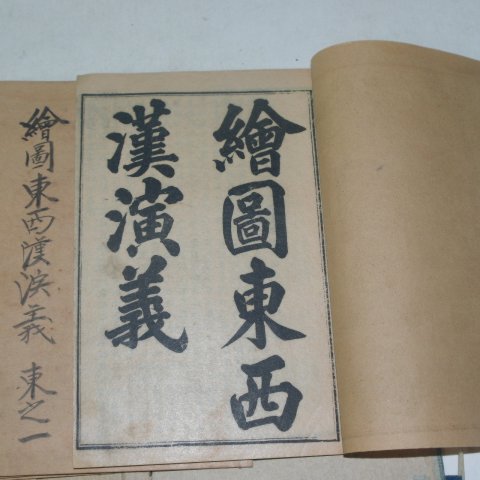 繪圖東西
漢演義
繪圖東西漢演義 東之一